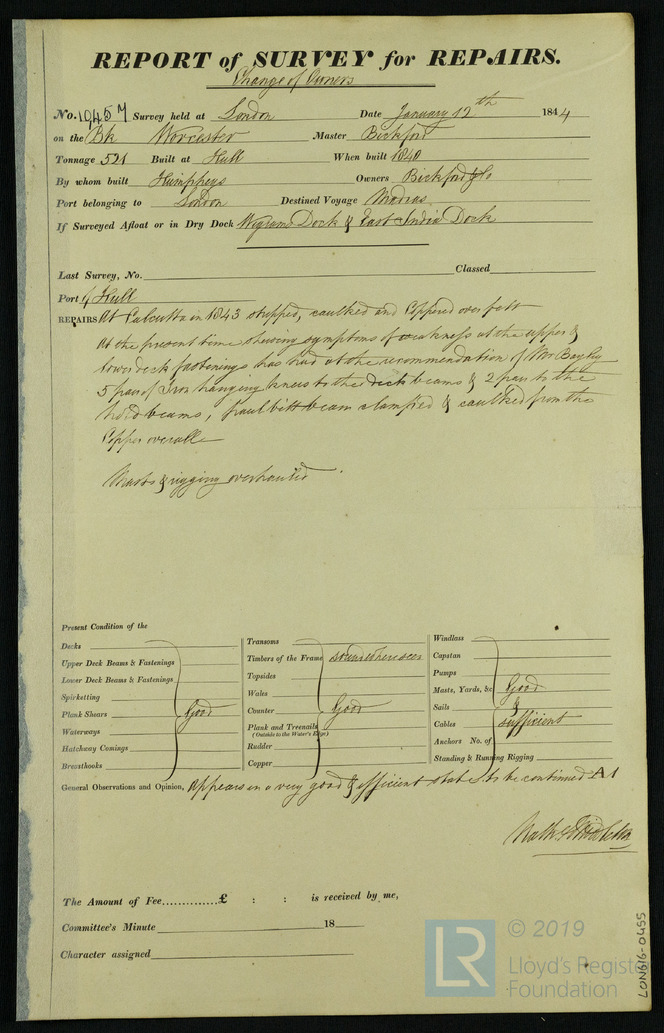 REPORT of SURVEY for REPAIRS.
Change of Owners
No. 10457 Survey held at London Date January 12th 1844
on the Bk Worcester Master Bickford
Tonnage 521 Built at Hull When built 1840
By whom built Humphrys Owners Bickford & Co
Port belonging to London Destined Voyage Madras
If Surveyed Afloat or in Dry Dock Wigrams Dock & East India Dock
Last Survey, No. Classed
Port of Hull
REPAIRS At Calcutta in 1843 stripped, caulked and Coppered over felt
At the present time shewing symptoms of weakness at the upper &
lower deck fastenings has had at the recommendation of Mr Bayley
5 pair of Iron hanging knees to the deck beams & 2 pair to the
hold beams; paul bitt beam clamped & caulked from the
Copper overall
Masts & rigging overhauled.
Present Condition of the
Decks
Upper Deck Beams & Fastenings
Lower Deck Beams & Fastenings
Spirketting
Plank Shears Good
Waterways
Hatchway Comings
Breasthooks
Transoms
Timbers of the Frame sound where seen
Topsides
Wales
Counter Good
Plank and Treenails
(Outside to the Water's Edge)
Rudder
Copper
Windlass
Capstan
Pumps
Masts, Yards, &c Good
Sails &
Cables sufficient
Anchors No. of
Standing & Running Rigging
General Observations and Opinion, Appears in a very good & efficient state & to be continued A1
The Amount of Fee..............£ : : is received by me,
Committee's Minute 18
Character assigned
© 2019
LR
Lloyd's Register
Foundation
LON616-0455